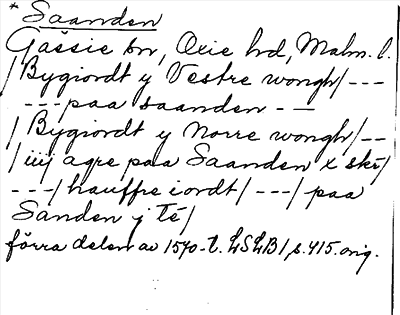 * Saanden
Gässie sn, Oxie hd, Malm. l.
/Bygiordt y Vestre wongh/---
---/paa saanden ——
/Bygiordt y Norre wongh/--
/iiij agre paa Saanden x skr/
---/hauffre iordt/---/paa
Sanden j Té/
förra delen av 1570-t. LSLB1, s. 415. orig.